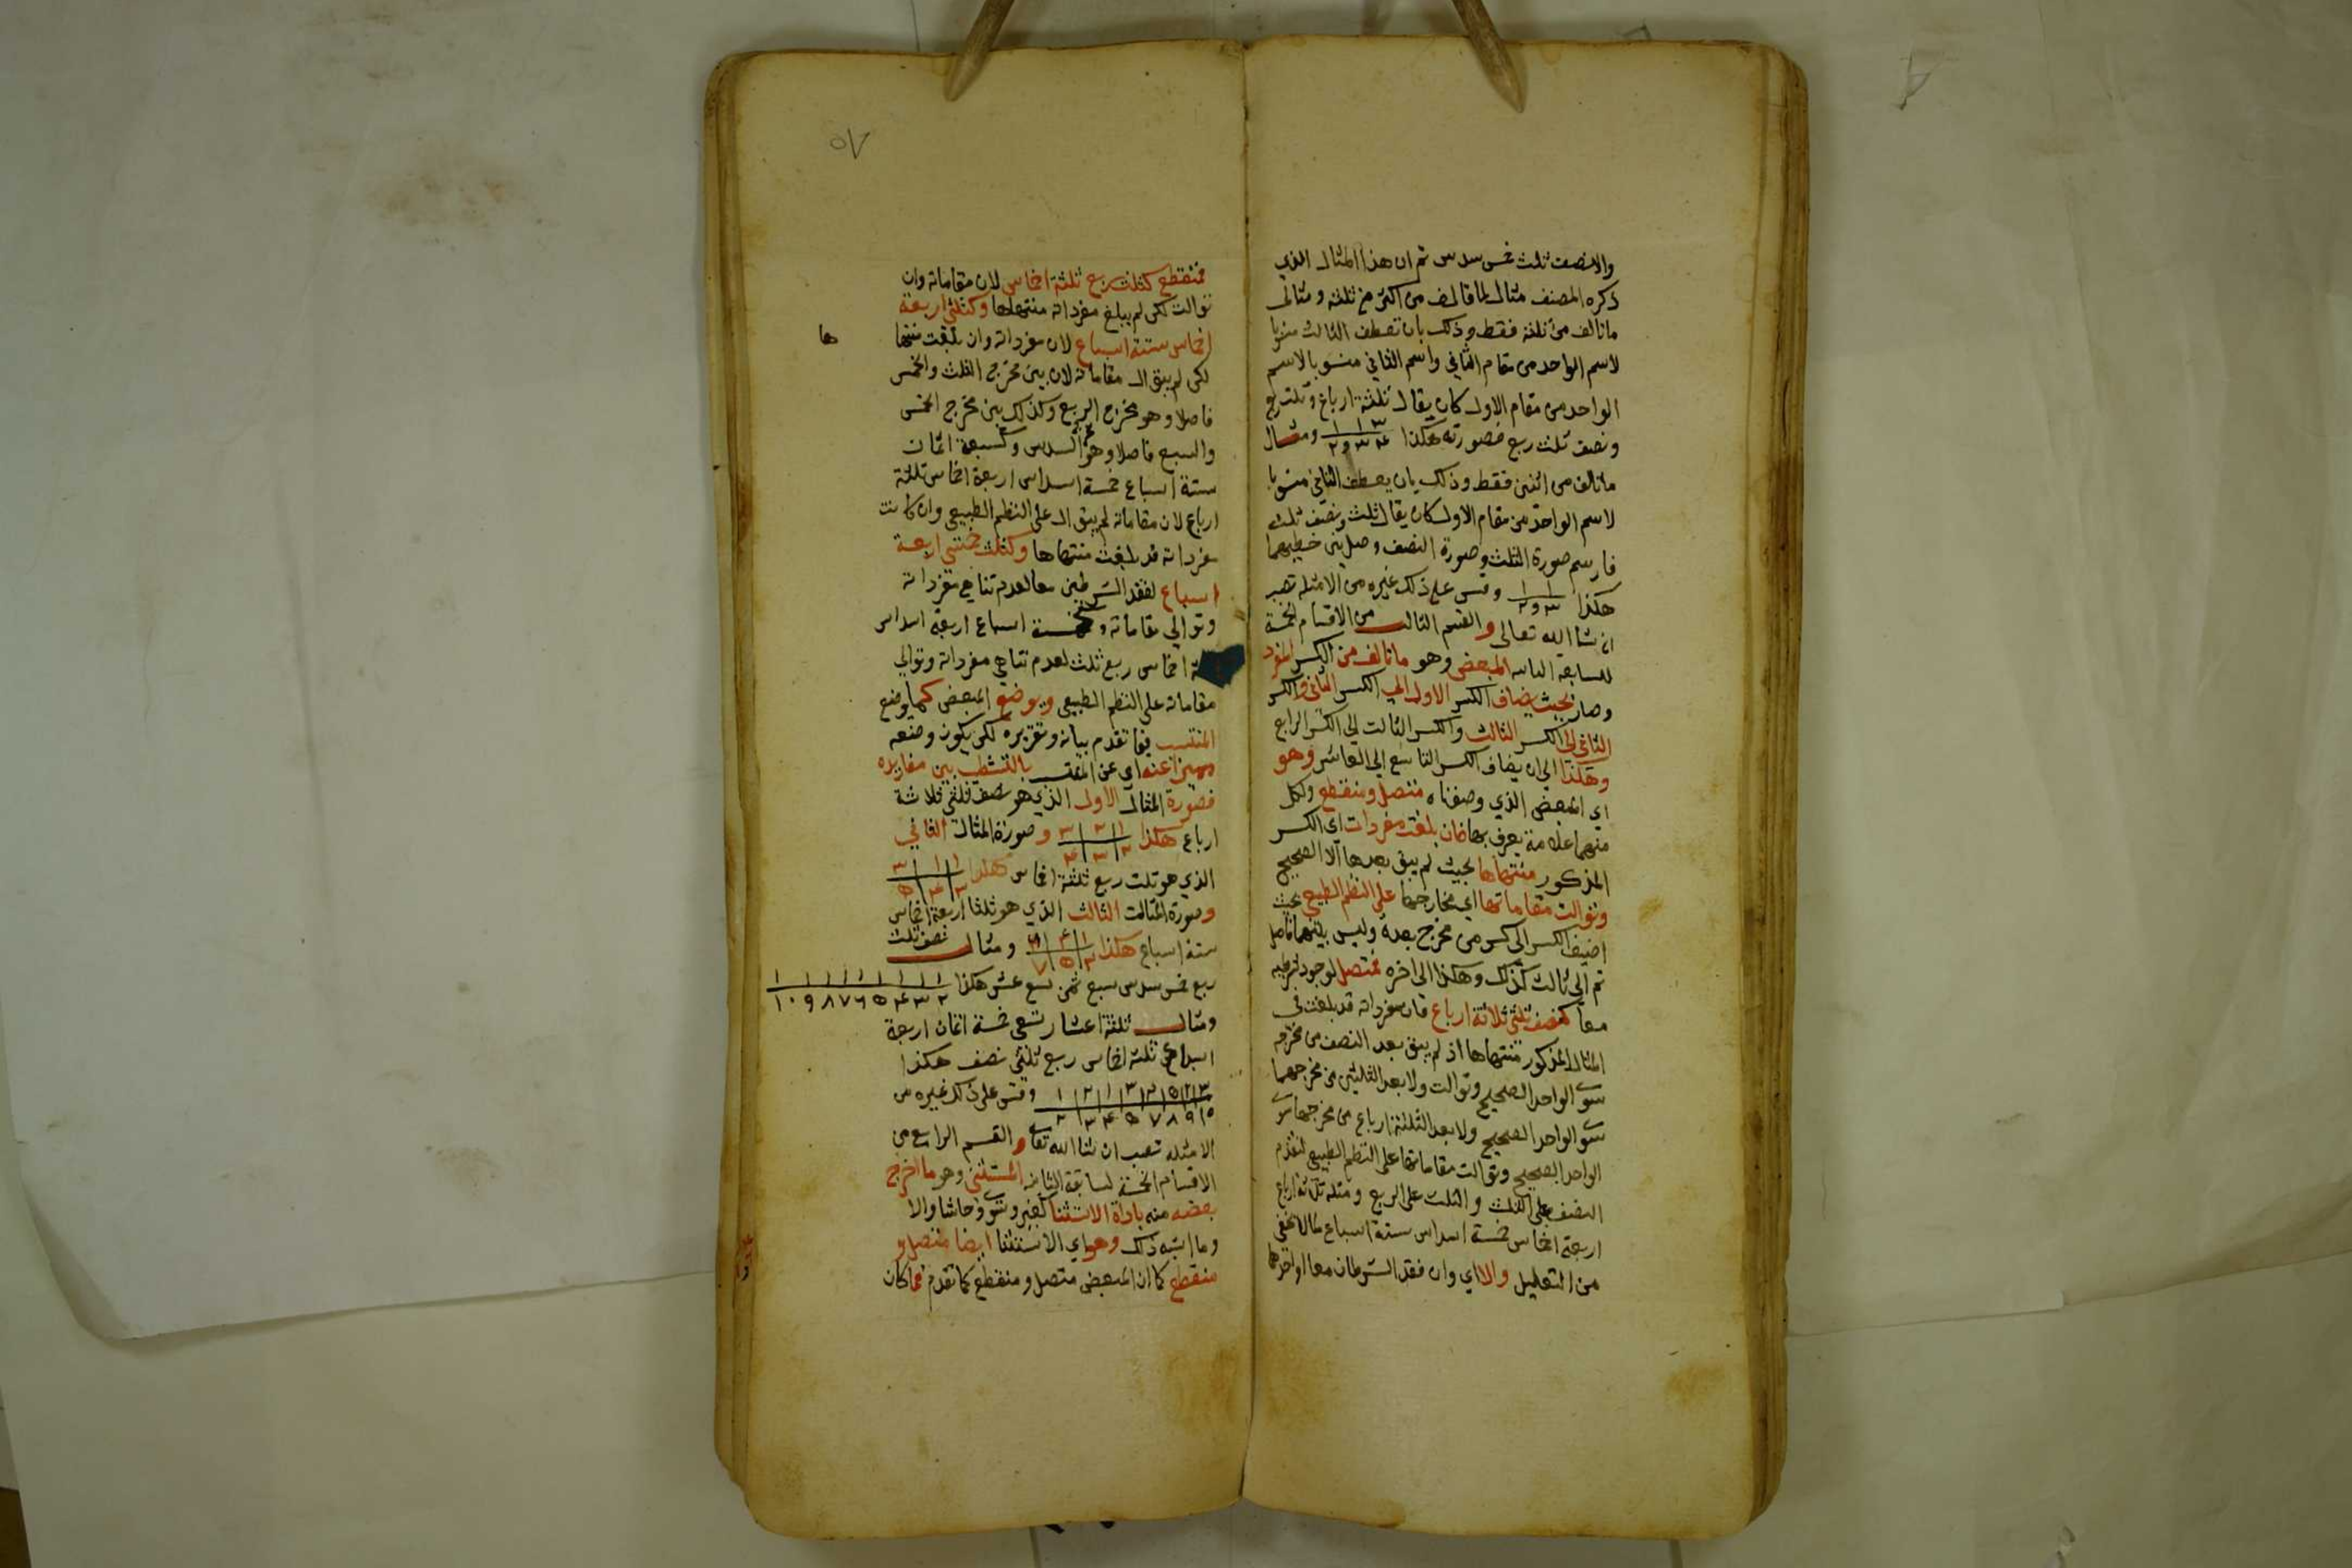 والا نصف ثلث خمس سدس ثم ان هذا المثال الذي
ذكره المصنف مثال لما تالف من اكثر من ثلثة ومثال
ما تالف من ثلثة فقط وذلك بان تعطف الثالث منسوبا
لاسم الواحد من مقام الثاني واسم الثاني منسوبا لاسم
الواحد من مقام الاول كان يقال ثلثة ارباع وثلث ربع
ونصف ثلث ربع فصورته هكذا ٣ ١ ١ ٤ ٣ ٢ ومثال
ما تالف من اثنين فقط وذلك بان يعطف الثاني منسوبا
لاسم الواحد من مقام الاول كان يقال ثلث ونصف ثلث
فارسم صورة الثلث وصورة النصف وصل بين خطيهما
هكذا ١ ١ ٣ ٢ وقس على ذلك غيره من الامثلة تصب
ان شا الله تعالى والقسم الثالث من الاقسام الخمسة
المبعض وهو ما تالف من الكسر المفرد
وصار بحيث يضاف الكسر الاول الي الكسر الثاني والكسر
الثاني الى الكسر الثالث والكسر الثالث الى الكسر الرابع
وهكذا الى ان يضاف الكسر التاسع الى العاشر وهو
اي المبعض الذي وصفناه متصل ومنقطع ولكل
منهما علامة يعرف بها فان بلغت مفردات اي الكسر
المذكور منتهاها بحيث لم يبق بعدها الا الصحيح
وتوالت مقاماتها اي مخارجها على النظم الطبيعي بحيث
اضيف الكسر الى كسر من مخرج بعده وليس بينهما فاصل
ثم الى ثالث كذلك وهكذا الى اخره فمتصل لوجود شرطيه
معا كنصف ثلثي ثلاثة ارباع فان مفرداته قد بلغت في
المثال المذكور منتهاها اذ لم يبق بعد النصف من مخرجه
سوى الواحد الصحيح وتوالت ولا بعد الثلثين من مخرجهما
سوى الواحد الصحيح ولا بعد الثلثة ارباع من مخرجها سوى
الواحد الصحيح وتوالت مقاماتها على النظم الطبيعي لتقدم
النصف على الثلث والثلث على الربع ومثله ثلاثة ارباع
اربعة اخماس خمسة اسداس ستة اسباع لما لا يخفى
من التعليل والا اي وان فقد الشرطان معا او احدهما
٥٧
فمنقطع كثلث ربع ثلثة اخماس لان مقاماته وان
توالت لكن لم يبلغ مفرداته منتهاها وكثلثي اربعة
اخماس ستة اسباع لان مفرداته وان بلغت منتها
ها
لكن لم يتوال مقاماته لان بين مخرج الثلث والخمس
فاصلا وهو مخرج الربع وكذلك بين مخرج الخمس
والسبع فاصلا وهو مخرج السدس وكسبعة اثمان
ستة اسباع خمسة اسداس اربعة اخماس ثلثة
ارباع لان مقاماته لم يتوال على النظم الطبيعي وان كانت
مفرداته قد بلغت منتهاها وكثلث خمسي اربعة
اسباع لفقد الشرطين معا لعدم تناهي مفرداته
وتوالي مقاماته وكخمسة اسباع اربعة اسداس
اخماس ربع ثلث لعدم تناهي مفرداته وتوالي
مقاماته على النظم الطبيعي ويوضع المبعض كما يوضع
المنتسب فيما تقدم بيانه وتقريره لكن يكون وضعه
مميزا عنه اي عن المنتسب بالتشطيب بين مفاريده
فصورة المثال الاول الذي هو نصف ثلثي ثلاثة
ارباع هكذا ١ ٢ ٣ ٢ ٣ ٤ وصورة المثال الثاني
الذي هو ثلث ربع ثلثة اخماس هكذا ١ ١ ٣ ٣ ٤ ٥
وصورة المثال الثالث الذي هو ثلثا اربعة اخماس
ستة اسباع هكذا ٧ ٥ ٣ ومثال نصف ثلث
ربع خمس سدس سبع ثمن تسع عشر هكذا ١ ١ ١ ١ ١ ١ ١ ١ ١ ٢ ٣ ٤ ٥ ٦ ٧ ٨ ٩ ١٠
ومثال ثلثة اعشار تسعي خمسة اثمان اربعة
اسباع ثلثة اخماس ربع ثلثي نصف هكذا
وقس على ذلك غيره من
الامثلة تصب ان شا الله تعالى والقسم الرابع من
الاقسام الخمسة المستثنى وهو ما اخرج
بعضه منه باداة الاستثنا كغير وسوى وحاشا والا
وما اشبه ذلك وهو اي الاستثنا ايضا متصل و
منقطع كما ان المبعض متصل ومنقطع كما تقدم فما كان